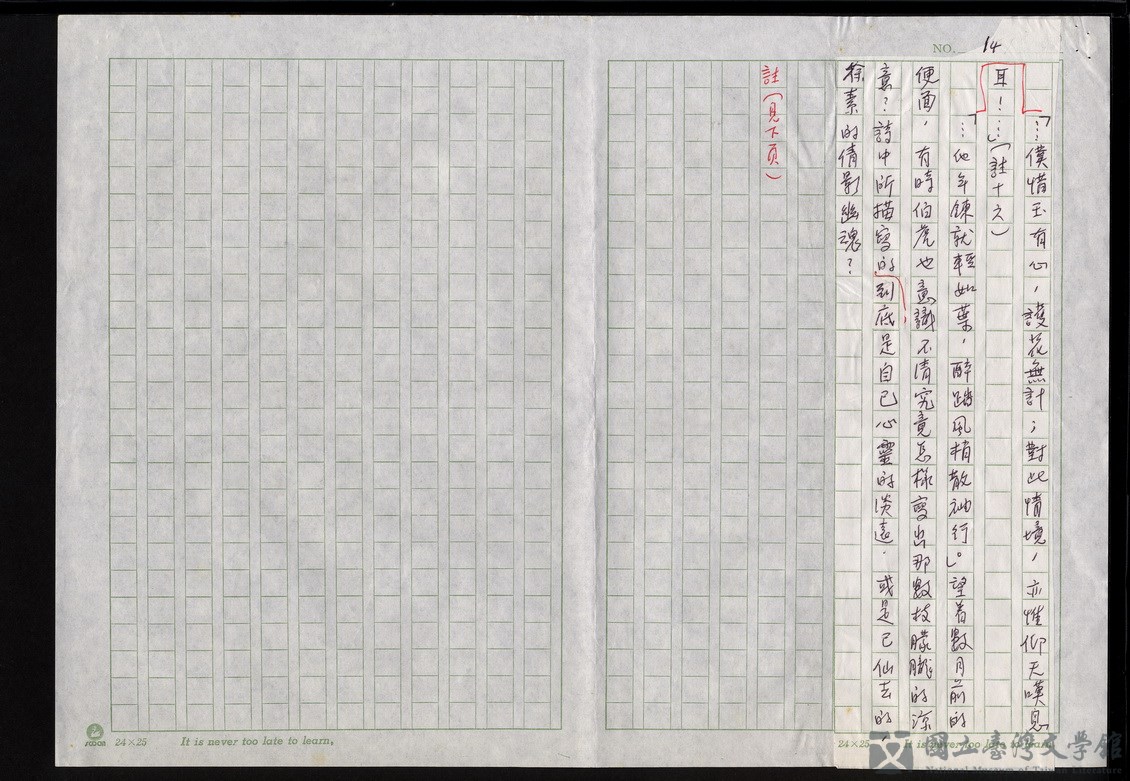 NO. 14
「…僕惜玉有心,護花無計;對此情境,亦惟仰天嘆息
耳!…」(註十六)
「…他年鍊就輕如葉,醉踏風梢散袖行」。望着數月前的
便面,有時伯虎也意識不清究竟怎樣寫出那數枝朦朧的涼
意?詩中所描寫的到底是自己心靈的淡遠.或是已仙去的
徐素的倩影幽魂?
註(見下頁)
24×25 It is never too late to learn,
24×25 It is never too late to learn,
國立臺灣文學館
National Museum of Taiwan Literature